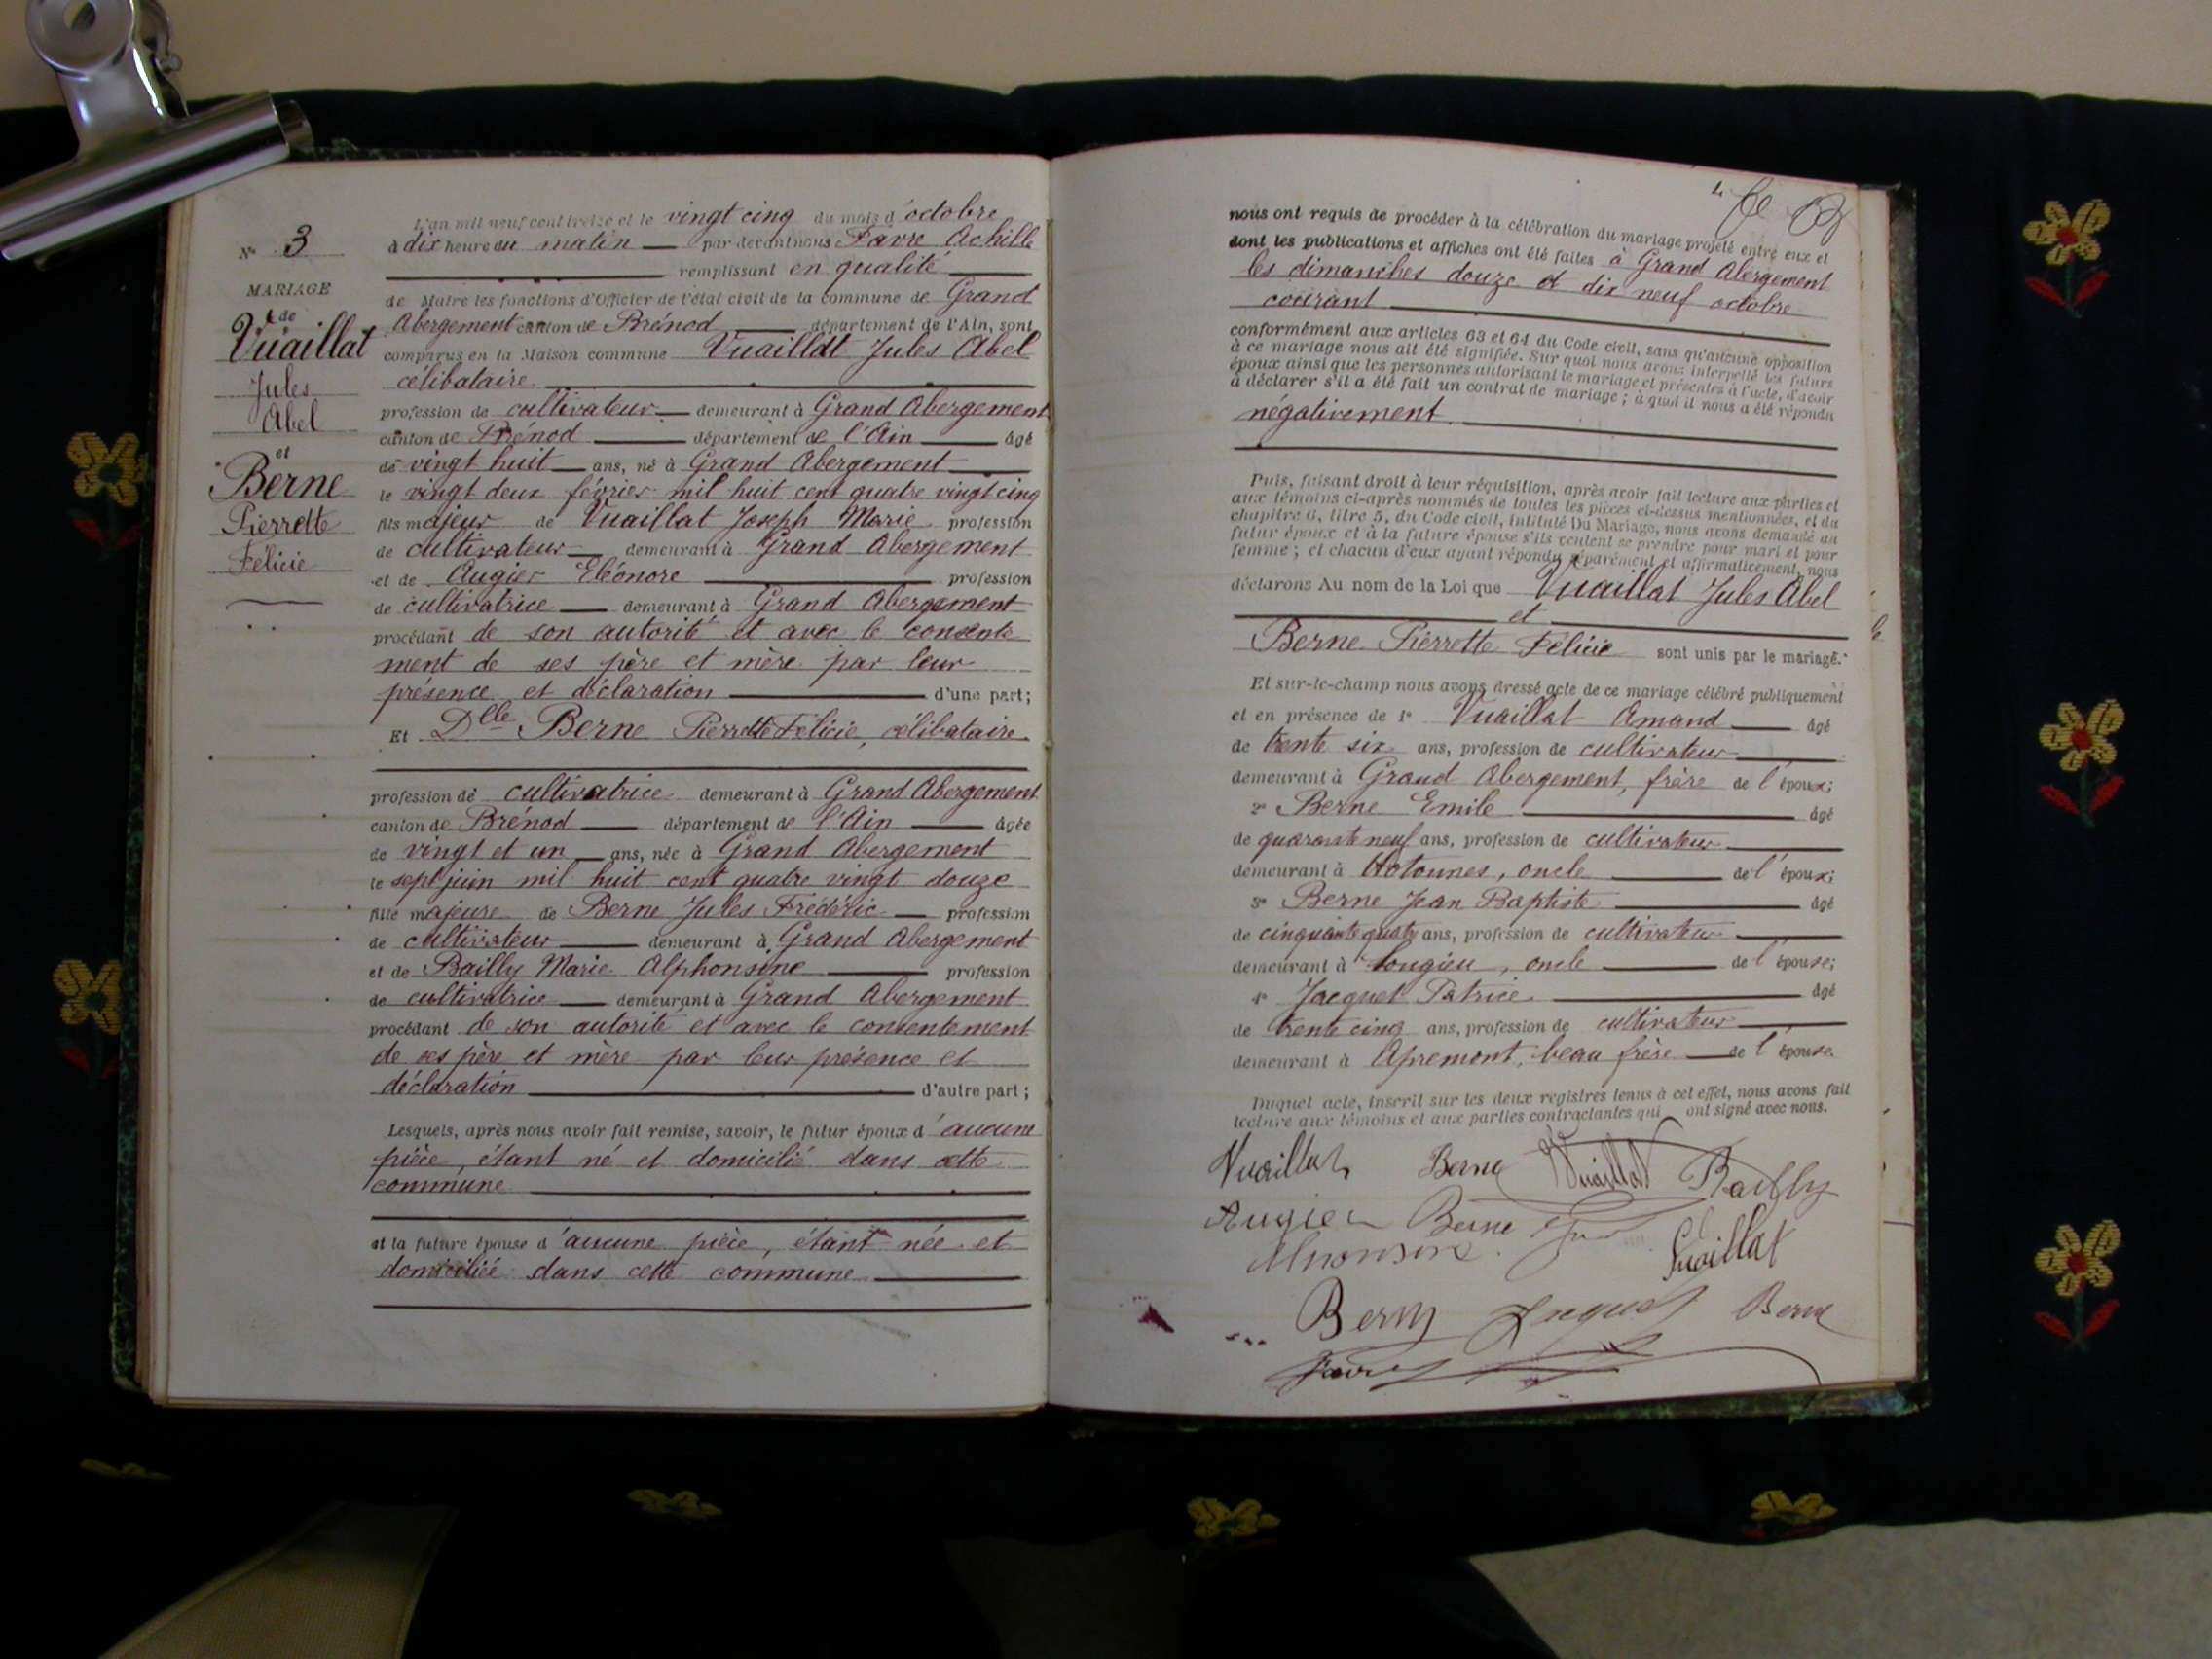 N° 3
MARIAGE
de
Vuaillat
Jules
Abel
et
Berne
Pierrette
Félicie
L'an mil neuf cent treize et le vingt cinq du mois d'octobre
à dix heure du matin par devant nous Favre Achille
remplissant en qualité
de Maire les fonctions d'Officier de l'état civil de la commune de Grand
Abergement canton de Brénod département de l'Ain, sont
comparus en la Maison commune Vuaillat Jules Abel
célibataire
profession de cultivateur demeurant à Grand Abergement
canton de Brénod département de l'Ain âgé
de vingt huit ans, né à Grand Abergement
le vingt deux février mil huit cent quatre vingt cinq
fils majeur de Vuaillat Joseph Marie profession
de cultivateur demeurant à Grand Abergement
et de Augier Eléonore profession
de cultivatrice demeurant à Grand Abergement
procédant de son autorité et avec le consente
ment de ses père et mère par leur
présence et déclaration d'une part;
Et Dlle Berne Pierrette Félicie, célibataire
profession de cultivatrice demeurant à Grand Abergement
canton de Brénod département de l'Ain âgée
de vingt et un ans, née à Grand Abergement
le sept juin mil huit cent quatre vingt douze
fille majeure de Berne Jules Frédéric profession
de cultivateur demeurant à Grand Abergement
et de Bailly Marie Alphonsine profession
de cultivatrice demeurant à Grand Abergement
procédant de son autorité et avec le consentement
de ses père et mère par leur présence et
déclaration d'autre part;
Lesquels, après nous avoir fait remise, savoir, le futur époux d'aucune
pièce, étant né et domicilié dans cette
commune
et la future épouse d'aucune pièce, étant née et
domiciliée dans cette commune
4
nous ont requis de procéder à la célébration du mariage projeté entre eux et
dont les publications et affiches ont été faites à Grand Abergement
les dimanches douze et dix neuf octobre
courant
conformément aux articles 63 et 64 du Code civil, sans qu'aucune opposition
à ce mariage nous ait été signifiée. Sur quoi nous avons interpellé les futurs
époux ainsi que les personnes autorisant le mariage et présentes à l'acte, d'avoir
à déclarer s'il a été fait un contrat de mariage; à quoi il nous a été répondu
négativement
Puis, faisant droit à leur réquisition, après avoir fait lecture aux parties et
aux témoins ci-après nommés de toutes les pièces ci-dessus mentionnées, et du
chapitre 6, titre 5, du Code civil, intitulé Du Mariage, nous avons demandé au
futur époux et à la future épouse s'ils veulent se prendre pour mari et pour
femme; et chacun d'eux ayant répondu séparément et affirmativement, nous
déclarons Au nom de la Loi que Vuaillat Jules Abel
et
Berne Pierrette Félicie sont unis par le mariage.
Et sur-le-champ nous avons dressé acte de ce mariage célébré publiquement
et en présence de 1° Vuaillat Amand âgé
de trente six ans, profession de cultivateur
demeurant à Grand Abergement, frère de l'époux;
2° Berne Emile âgé
de quarante neuf ans, profession de cultivateur
demeurant à Hotonnes, oncle de l'époux;
3° Berne Jean Baptiste âgé
de cinquante quatre ans, profession de cultivateur
demeurant à Songieu, oncle de l'épouse;
4° Jacquet Patrice âgé
de trente cinq ans, profession de cultivateur
demeurant à Apremont, beau frère de l'épouse.
Duquel acte, inscrit sur les deux registres tenus à cet effet, nous avons fait
lecture aux témoins et aux parties contractantes qui ont signé avec nous.
Vuaillat Berne Vuaillat Bailly
Augier Berne
Vuaillat
Berne Jacquet Berne
Favre